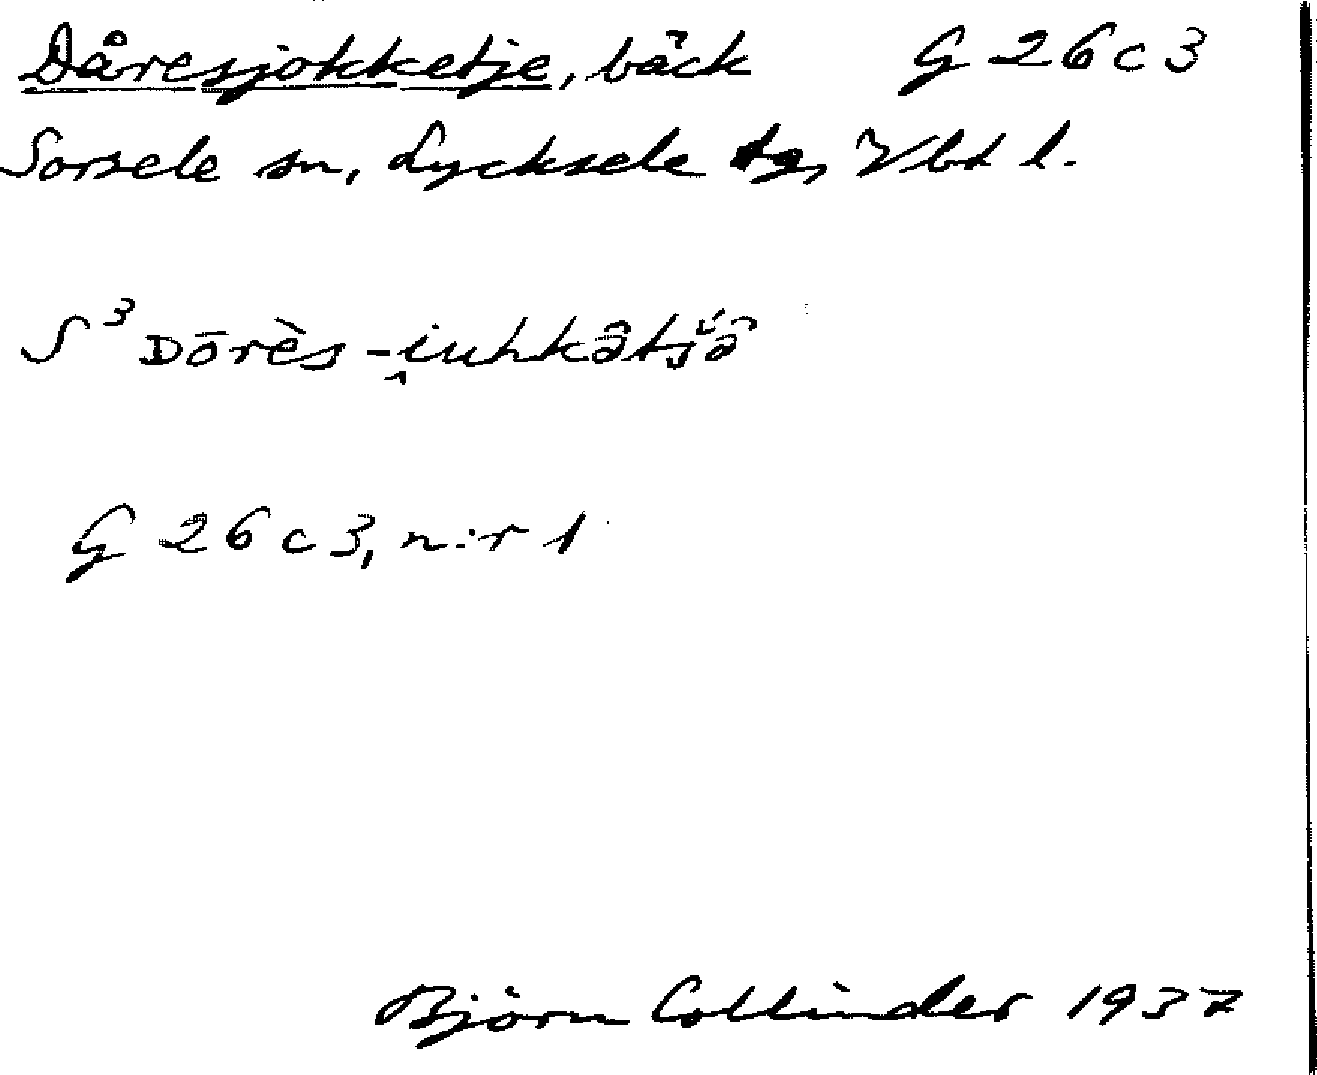 Dåresjokketje, bäck G 26 c 3
Sorsele sn, Lycksele tg, Vbt l.
S³ Dōrès-i̯uhkə̑tjə̑̆
G 26 c 3, n:r 1
Björn Collinder 1937